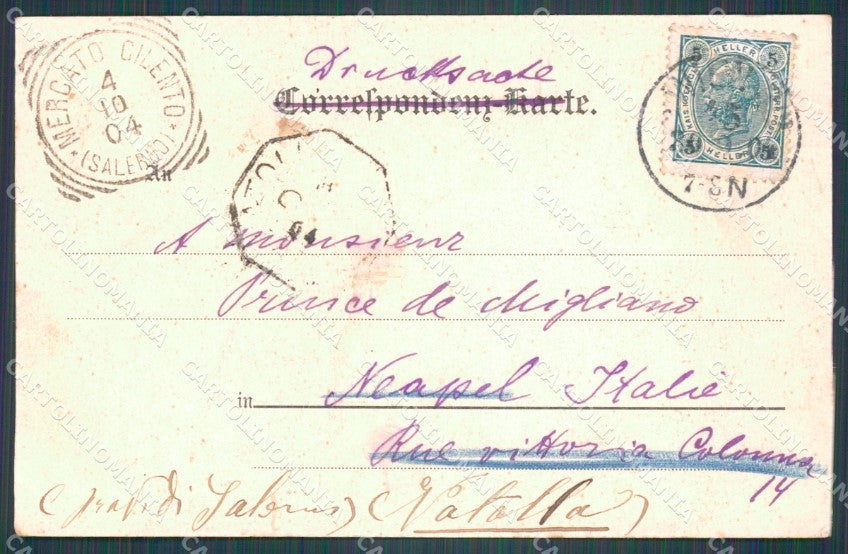 Drucksache
Correspondenz-Karte.
MERCATO CILENTO
4
10
04
(SALERNO)
5 HELLER 5
5 HELLER 5
7-8N
An
04
A Monsieur
Prince de Migliano
in Neapel Italie
Rue vittoria Colonna
14
(prov. di Salerno) (Vatolla)
CARTOLINOMANIA